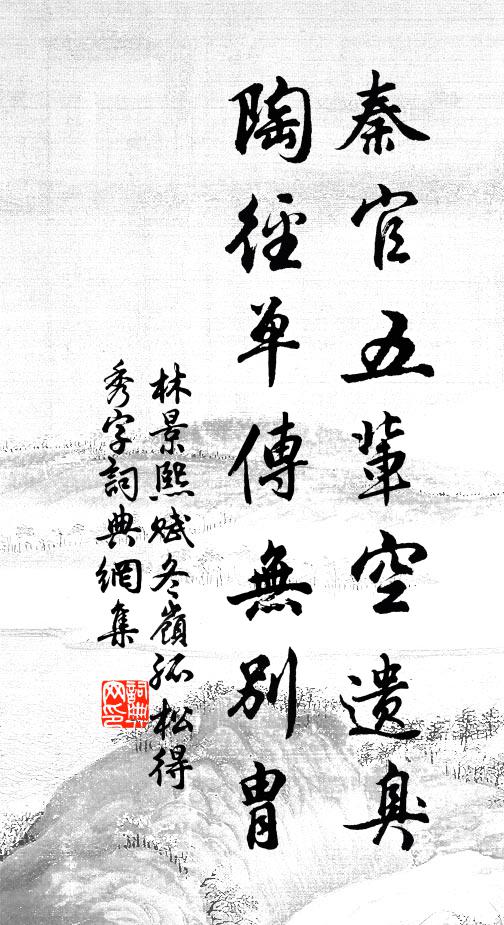 秦官五輩空遺臭
陶徑单傳無別胄
林景熙賦冬嶺孤松得
秀字詞典網集
詞典网印